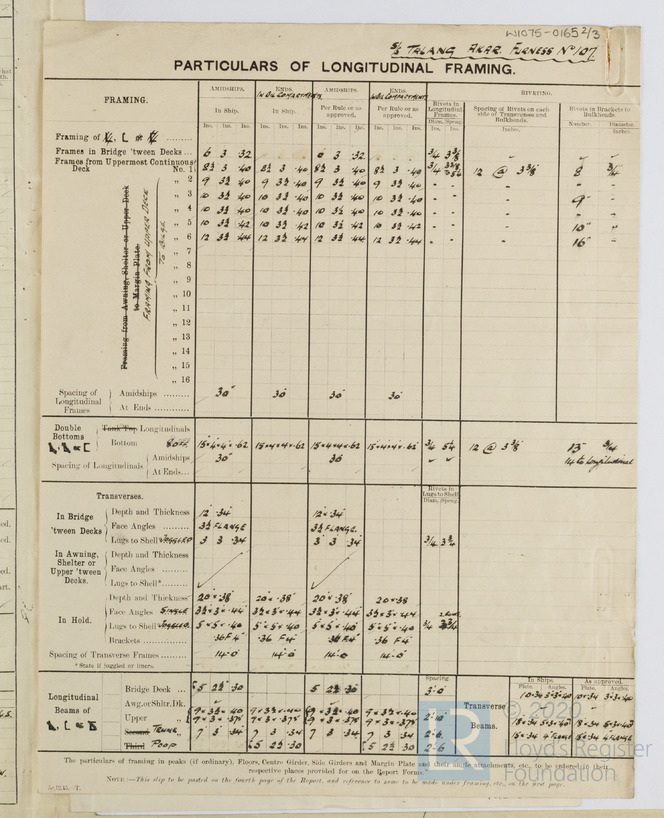 W1075-0165 2/3
S/S TALANG AKAR. FURNESS No 107
PARTICULARS OF LONGITUDINAL FRAMING.
FRAMING.
AMIDSHIPS. ENDS. AMIDSHIPS. ENDS. RIVETING.
IN OIL COMPARTMENTS
In Ship. In Ship. Per Rule or as approved. Per Rule or as approved.
Rivets in Longitudinal Frames. Spacing of Rivets on each side of Transverses and Bulkheads. Rivets in Brackets to Bulkheads.
Ins. Ins. Ins. Ins. Ins. Ins. Ins. Ins. Ins. Ins. Ins. Ins. Diam. Spcng. Inches. Number. Diameter.
Framing of
Frames in Bridge 'tween Decks ... 6 3 .32 6 3 .32 3/4
Frames from Uppermost Continuous
Deck No. 1 8½ 3 .40 8½ 3 .40 8½ 3 .40 8½ 3 .40 3/4 12 @ 3 3/8 8 3/4
„ 2 9 3½ .40 9 3½ .40 9 3½ .40 9 3½ .40
„ 3 10 3½ .40 10 3½ .40 10 3½ .40 10 3½ .40 9
„ 4 10 3½ .40 10 3½ .40 10 3½ .40 10 3½ .40
„ 5 10 3½ .42 10 3½ .42 10 3½ .42 10 3½ .42 10
„ 6 12 3½ .44 12 3½ .44 12 3½ .44 12 3½ .44 16
„ 7
„ 8
„ 9
„ 10
„ 11
„ 12
„ 13
„ 14
„ 15
„ 16
Framing from Awning, Shelter or Upper Deck
to Margin Plate.
FRAMING FROM UPPER DECK
TO BILGE
Spacing of Longitudinal Frames
Amidships 30" 30 30 30
At Ends
Double Bottoms
Tank Top Longitudinals
Bottom 15×4×4×.62 15×4×4×.62 15×4×4×.62 15×4×4×.62 3/4 5¼ 12 @ 3 3/8 15 3/4
Spacing of Longitudinals Amidships 30" 30 14 to longitudinal
At Ends...
Transverses.
Rivets in Lugs to Shell
Diam. Spcng.
In Bridge 'tween Decks
Depth and Thickness 12 .34 12 × .34
Face Angles 3½ FLANGE 3½ FLANGE.
Lugs to Shell* JOGGLED 3 3 .34 3 3 .34 3/4 3¾
In Awning, Shelter or Upper 'tween Decks.
Depth and Thickness
Face Angles
Lugs to Shell*
In Hold.
Depth and Thickness 20 × .38 20 × .38 20 × .38 20 × .38
Face Angles SINGLE 3½×3×.44 3½×3×.44 3½×3×.44 3½×3×.44
Lugs to Shell* JOGGLED. 5×5×.40 5×5×.40 5×5×.40 5×5×.40 3/4
Brackets .36 F4" .36 F4" .36 F4" .36 F4"
Spacing of Transverse Frames 14-0 14-0 14-0 14-0
* State if joggled or liners.
Longitudinal Beams of
Spacing
In Ships. As approved.
Plate. Angles. Plate. Angles.
Bridge Deck ... 5 2½ .30 5 2½ .30 3-0 10×.34 3×3×.40 10×.34 3×3×.40
Awg.or Shltr.Dk.
Transverse Beams.
Upper „ 9×3½×.40 9×3½×.40 9×3½×.40 9×3½×.40 2-10
9×3×.375 9×3×.375 9×3×.375 9×3×.375
Second TRUNK. 7 3 .34 7 3 .34 7 3 .34 7 3 .34 2-6
Third POOP 5 2½ .30 5 2½ .30 2-6
The particulars of framing in peaks (if ordinary), Floors, Centre Girder, Side Girders and Margin Plate and their angle attachments, etc., to be entered in their
respective places provided for on the Report Forms.
NOTE:—This slip to be pasted on the fourth page of the Report, and reference to same to be made under framing, etc., on the next page.
© 2020
Lloyd's Register
Foundation